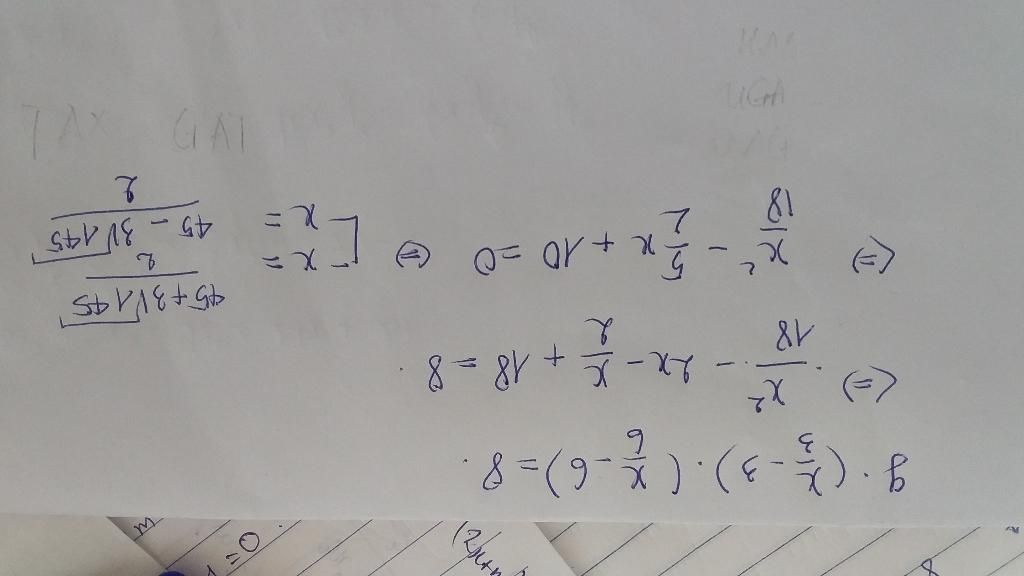 g. (x/3 - 3) . (x/6 - 6) = 8
(=) x²/18 - 2x - x/2 + 18 = 8
(=) x²/18 - 5/2 x + 10 = 0 (=) [ x = (45 + 3√145)/2
x = (45 - 3√145)/2
TAX GAT
UGA